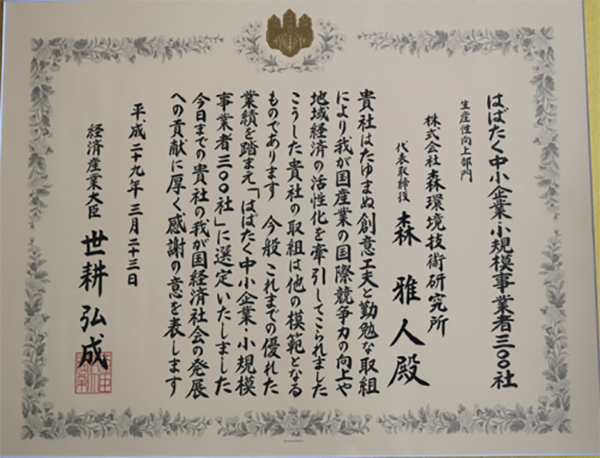 はばたく中小企業・小規模事業者三〇〇社
生産性向上部門
株式会社森環境技術研究所
代表取締役 森 雅人殿
貴社はたゆまぬ創意工夫と勤勉な取組
により我が国産業の国際競争力の向上や
地域経済の活性化を牽引してこられました
こうした貴社の取組は他の模範となる
ものであります 今般 これまでの優れた
業績を踏まえ「はばたく中小企業・小規模
事業者三〇〇社」に選定いたしました
今日までの貴社の我が国経済社会の発展
への貢献に厚く感謝の意を表します
平成二十九年三月二十三日
経済産業大臣 世耕弘成